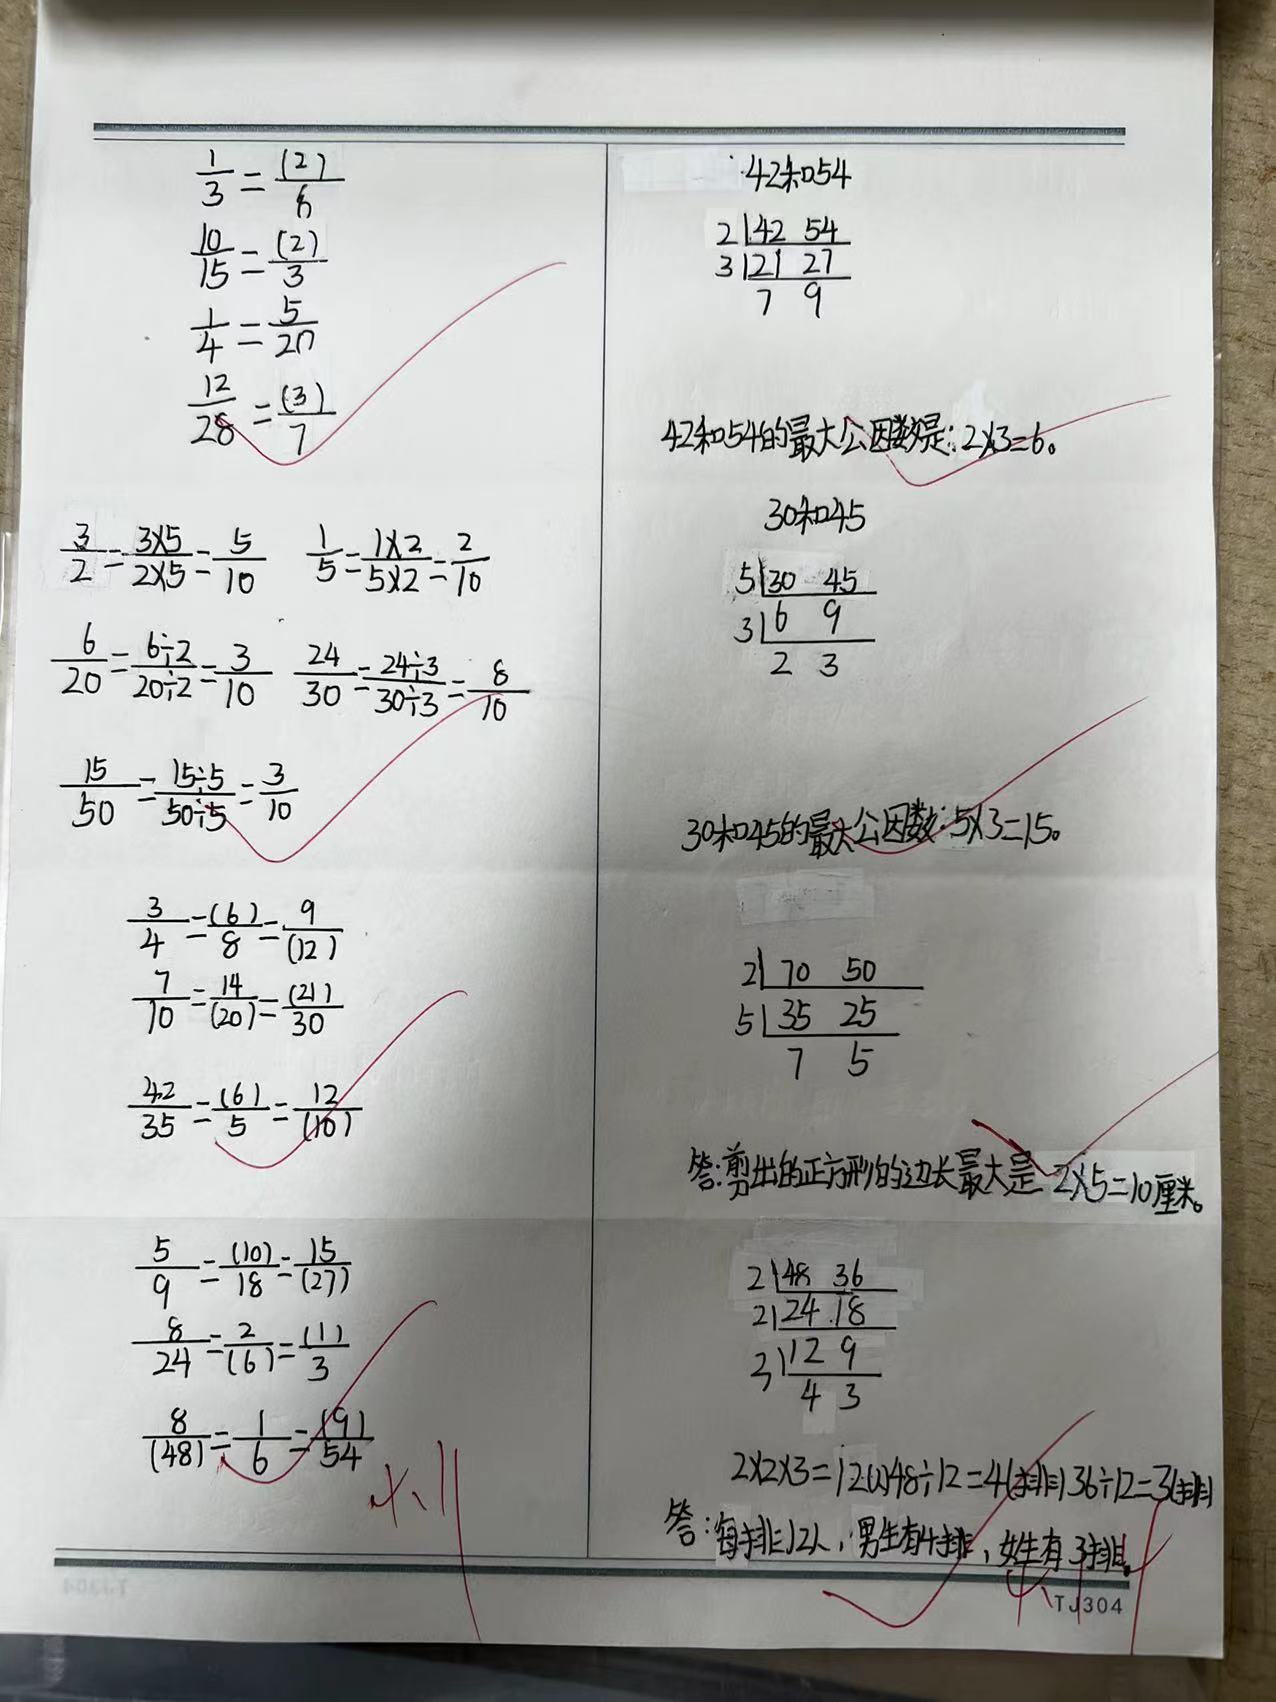 1/3 = (2)/6
10/15 = (2)/3
1/4 = 5/20
12/28 = (3)/7
3/2 = 3×5/2×5 = 5/10 1/5 = 1×2/5×2 = 2/10
6/20 = 6÷2/20÷2 = 3/10 24/30 = 24÷3/30÷3 = 8/10
15/50 = 15÷5/50÷5 = 3/10
3/4 = (6)/8 = 9/(12)
7/10 = 14/(20) = (21)/30
42/35 = (6)/5 = 12/(10)
5/9 = (10)/18 = 15/(27)
8/24 = 2/(6) = (1)/3
8/(48) = 1/6 = (9)/54
42和54
2 42 54
3 21 27
7 9
42和54的最大公因数是:2×3=6。
30和45
5 30 45
3 6 9
2 3
30和45的最大公因数:5×3=15。
2 70 50
5 35 25
7 5
答:剪出的正方形的边长最大是 2×5=10厘米。
2 48 36
2 24 18
3 12 9
4 3
2×2×3=12(人)48÷12=4(排)36÷12=3(排)
答:每排12人,男生有4排,女生有3排。
TJ304